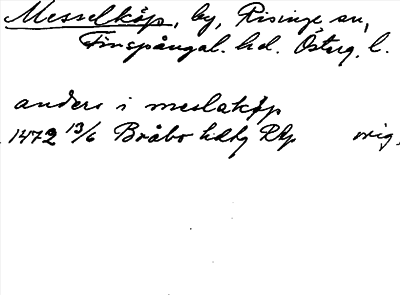 Messelköp, by, Risinge sn,
Finspångal. hd. Österg. l.
anders i meslaköp
1472 13/6 Bråbo hdtg Rkp orig.